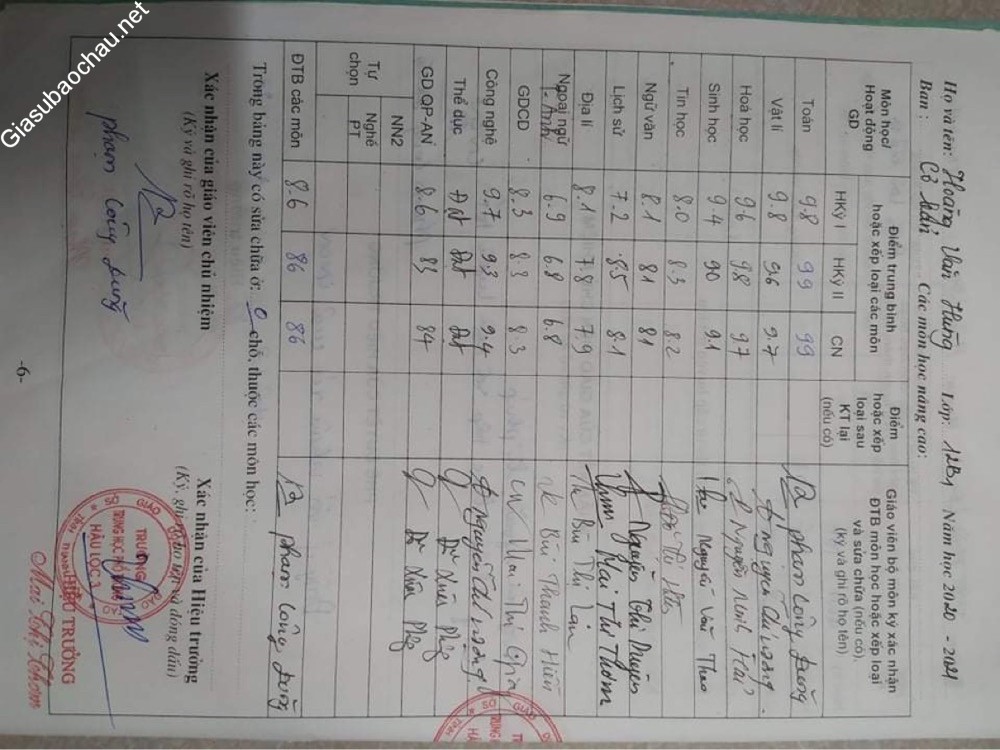 Họ và tên: Hoàng Văn Hưng Lớp: 12B4 Năm học 2020 - 2021
Ban: Cơ bản Các môn học nâng cao:
Môn học/ Hoạt động GD | Điểm trung bình hoặc xếp loại các môn | Điểm hoặc xếp loại sau KT lại (nếu có) | Giáo viên bộ môn ký xác nhận ĐTB môn học hoặc xếp loại và sửa chữa (nếu có) (ký và ghi rõ họ tên)
HKỳ I | HKỳ II | CN
Toán | 9.8 | 99 | 99 | Phạm Công Dũng
Vật lí | 9.8 | 96 | 9.7
Hoá học | 9.6 | 9.8 | 97 | Nguyễn Minh Hải
Sinh học | 9.4 | 90 | 9.1 | Nguyễn Văn Thao
Tin học | 8.0 | 8.3 | 8.2
Ngữ văn | 8.1 | 81 | 81 | Nguyễn Thị
Lịch sử | 7.2 | 8.5 | 8.1 | Mai Thị Thơm
Địa lí | 8.1 | 7.8 | 7.9 | Bùi Thị Lan
Ngoại ngữ Anh | 6.9 | 6.8 | 6.8 | Bùi Thanh Hiền
GDCD | 8.3 | 8.3 | 8.3 | Mai Thị
Công nghệ | 9.7 | 93 | 9.4 | Nguyễn
Thể dục | Đạt | Đạt | Đạt
GD QP-AN | 8.6 | 83 | 84
Tự chọn | NN2
Nghề PT
ĐTB các môn | 8.6 | 86 | 86 | Phạm Công Dũng
Trong bảng này có sửa chữa ở: 0 chỗ, thuộc các môn học:
Xác nhận của giáo viên chủ nhiệm
(Ký và ghi rõ họ tên)
Phạm Công Dũng
Xác nhận của Hiệu trưởng
(Ký, ghi rõ họ tên và đóng dấu)
TRƯỜNG
TRUNG HỌC PHỔ
HẬU LỘC 3
HIỆU TRƯỞNG
Mai Thị Thơm
-6-
Giasubaochau.net